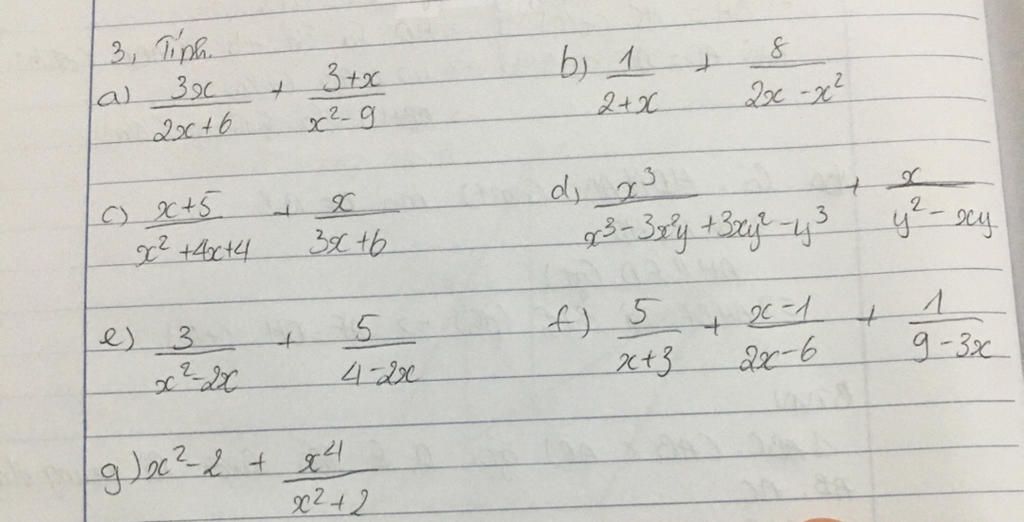 3, Tính.
a) \frac{3x}{2x+6} + \frac{3+x}{x^2-9} b) \frac{1}{2+x} + \frac{8}{2x-x^2}
c) \frac{x+5}{x^2+4x+4} + \frac{x}{3x+6} d, \frac{x^3}{x^3-3x^2y+3xy^2-y^3} + \frac{x}{y^2-xy}
e) \frac{3}{x^2-2x} + \frac{5}{4-2x} f) \frac{5}{x+3} + \frac{x-1}{2x-6} + \frac{1}{9-3x}
g) x^2-2 + \frac{x^4}{x^2+2}